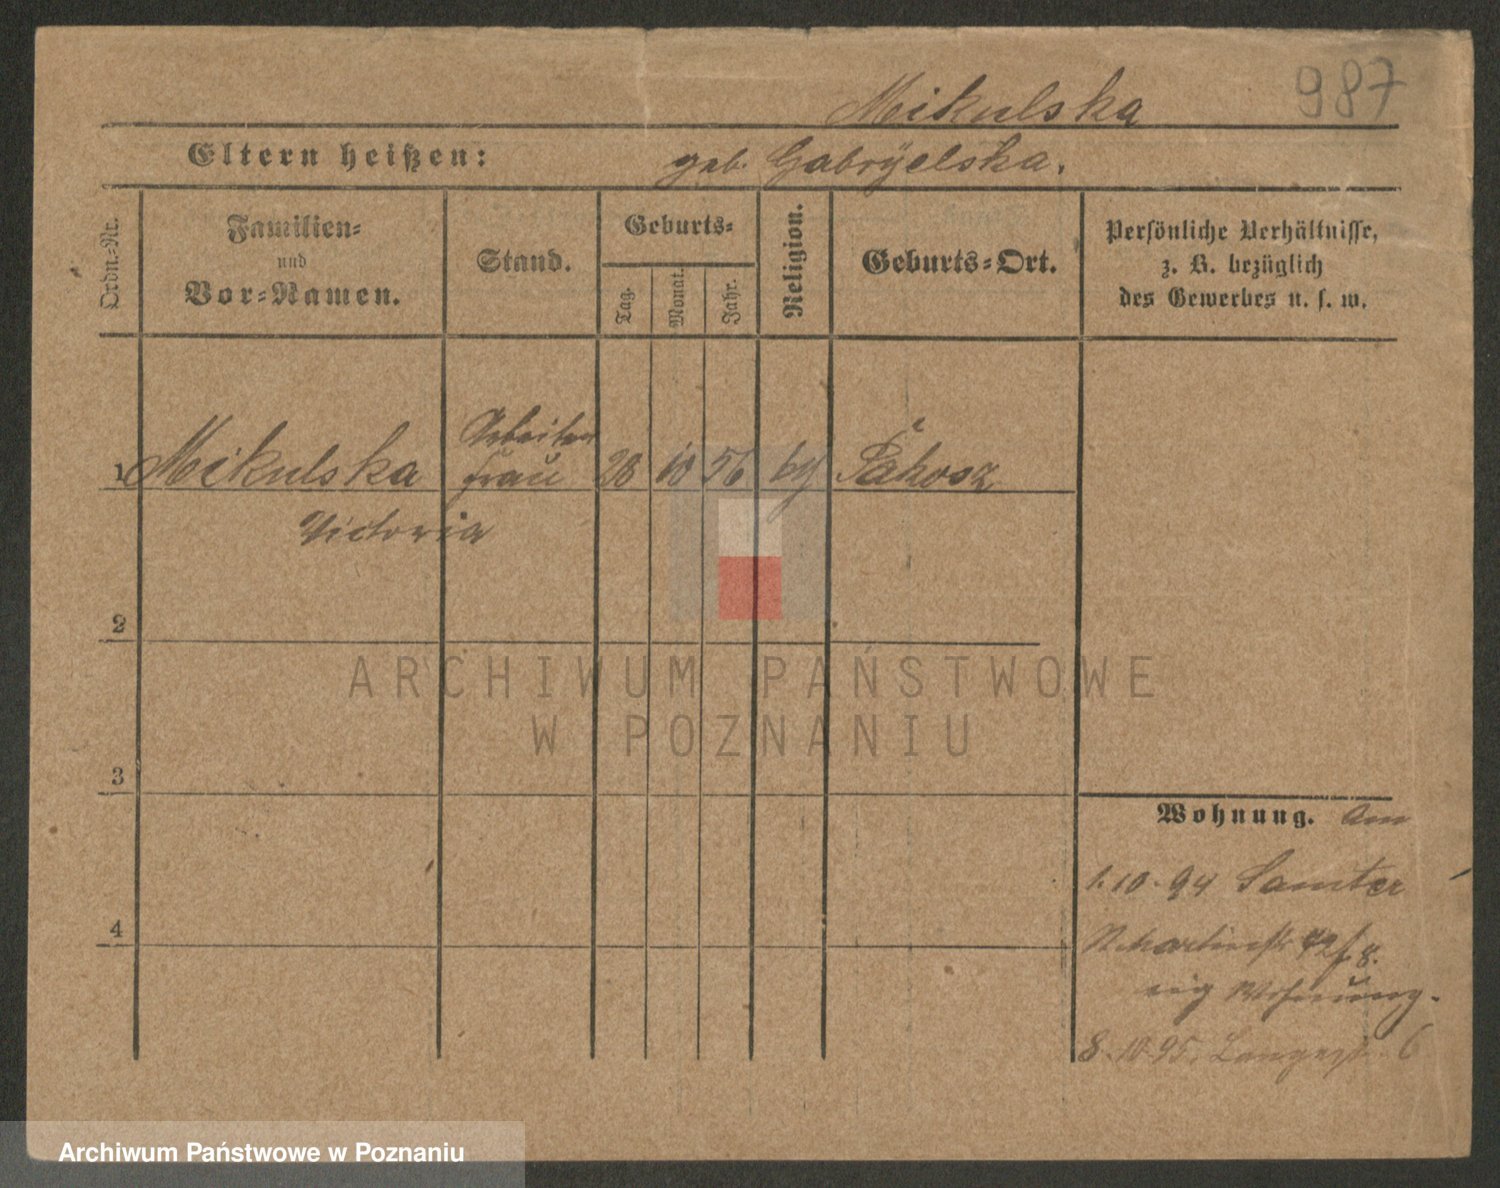 Mikulska 987
Eltern heißen: geb. Gabryelska.
Ordn.-Nr.
Familien-
und
Vor-Namen.
Stand.
Geburts-
Tag.
Monat.
Jahr.
Religion.
Geburts-Ort.
Persönliche Verhältnisse,
z. B. bezüglich
des Gewerbes u. s. w.
Arbeiter
1 Mikulska frau 28 10 56 Pakosz
Victoria
2
3
4
Wohnung. Am
1.10.94 Samter
St. Martinstr 42/8.
eig Wohnung.
8.10.95. Langestr. 6
ARCHIWUM PAŃSTWOWE
W POZNANIU
Archiwum Państwowe w Poznaniu